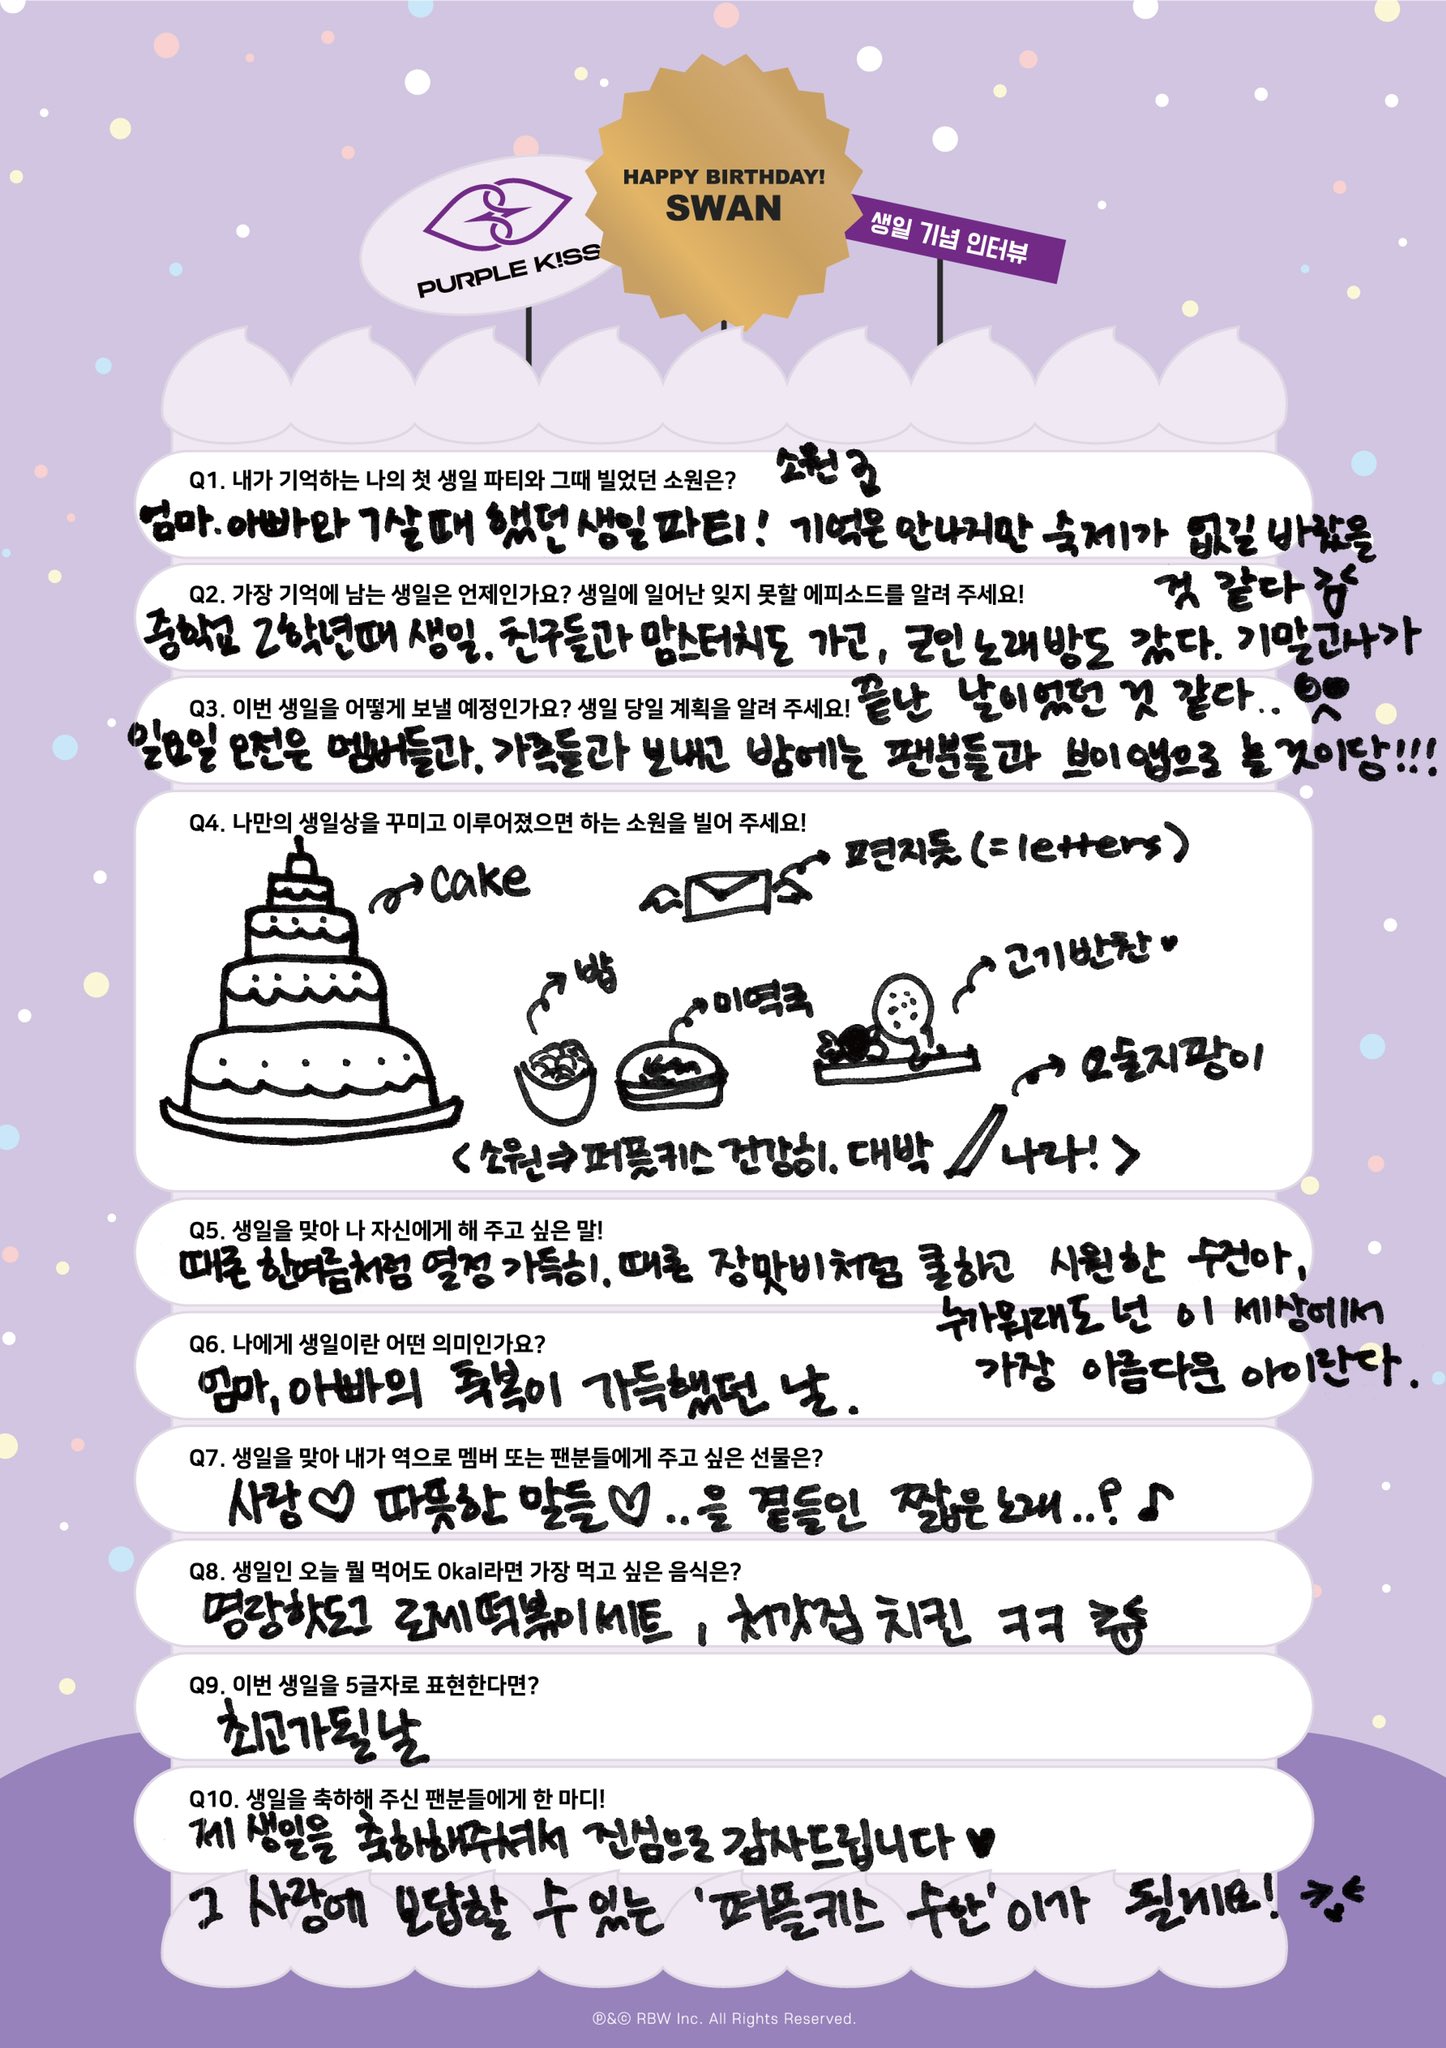 HAPPY BIRTHDAY!
SWAN
PURPLE K!SS
생일 기념 인터뷰
Q1. 내가 기억하는 나의 첫 생일 파티와 그때 빌었던 소원은?
소원
엄마. 아빠와 7살때 했던 생일파티! 기억은 안나지만 숙제가 없길 바랬을
것 같다
Q2. 가장 기억에 남는 생일은 언제인가요? 생일에 일어난 잊지 못할 에피소드를 알려 주세요!
중학교 2학년때 생일. 친구들과 맘스터치도 가고, 코인노래방도 갔다. 기말고사가
끝난 날이었던 것 같다..
Q3. 이번 생일을 어떻게 보낼 예정인가요? 생일 당일 계획을 알려 주세요!
일요일 오전은 멤버들과. 가족들과 보내고 밤에는 팬분들과 브이앱으로 놀 것이당!!!
Q4. 나만의 생일상을 꾸미고 이루어졌으면 하는 소원을 빌어 주세요!
cake
편지듯 (=letters)
밥
미역국
고기반찬♥
요술지팡이
<소원⇒퍼플키스 건강히. 대박 나라!>
Q5. 생일을 맞아 나 자신에게 해 주고 싶은 말!
때론 한여름처럼 열정 가득히. 때론 장맛비처럼 쿨하고 시원한 수진아,
누가뭐래도 넌 이 세상에서
가장 아름다운 아이란다.
Q6. 나에게 생일이란 어떤 의미인가요?
엄마, 아빠의 축복이 가득했던 날.
Q7. 생일을 맞아 내가 역으로 멤버 또는 팬분들에게 주고 싶은 선물은?
사랑♡ 따뜻한 말들♡..을 곁들인 짧은노래..? ♪
Q8. 생일인 오늘 뭘 먹어도 0kal라면 가장 먹고 싶은 음식은?
명랑핫도그 로제떡볶이세트, 처갓집 치킨 ㅋㅋ
Q9. 이번 생일을 5글자로 표현한다면?
최고가될날
Q10. 생일을 축하해 주신 팬분들에게 한 마디!
제 생일을 축하해주셔서 진심으로 감사드립니다♥
그 사랑에 보답할 수 있는 '퍼플키스 수안'이가 될게요!
ⓟ&ⓒ RBW Inc. All Rights Reserved.